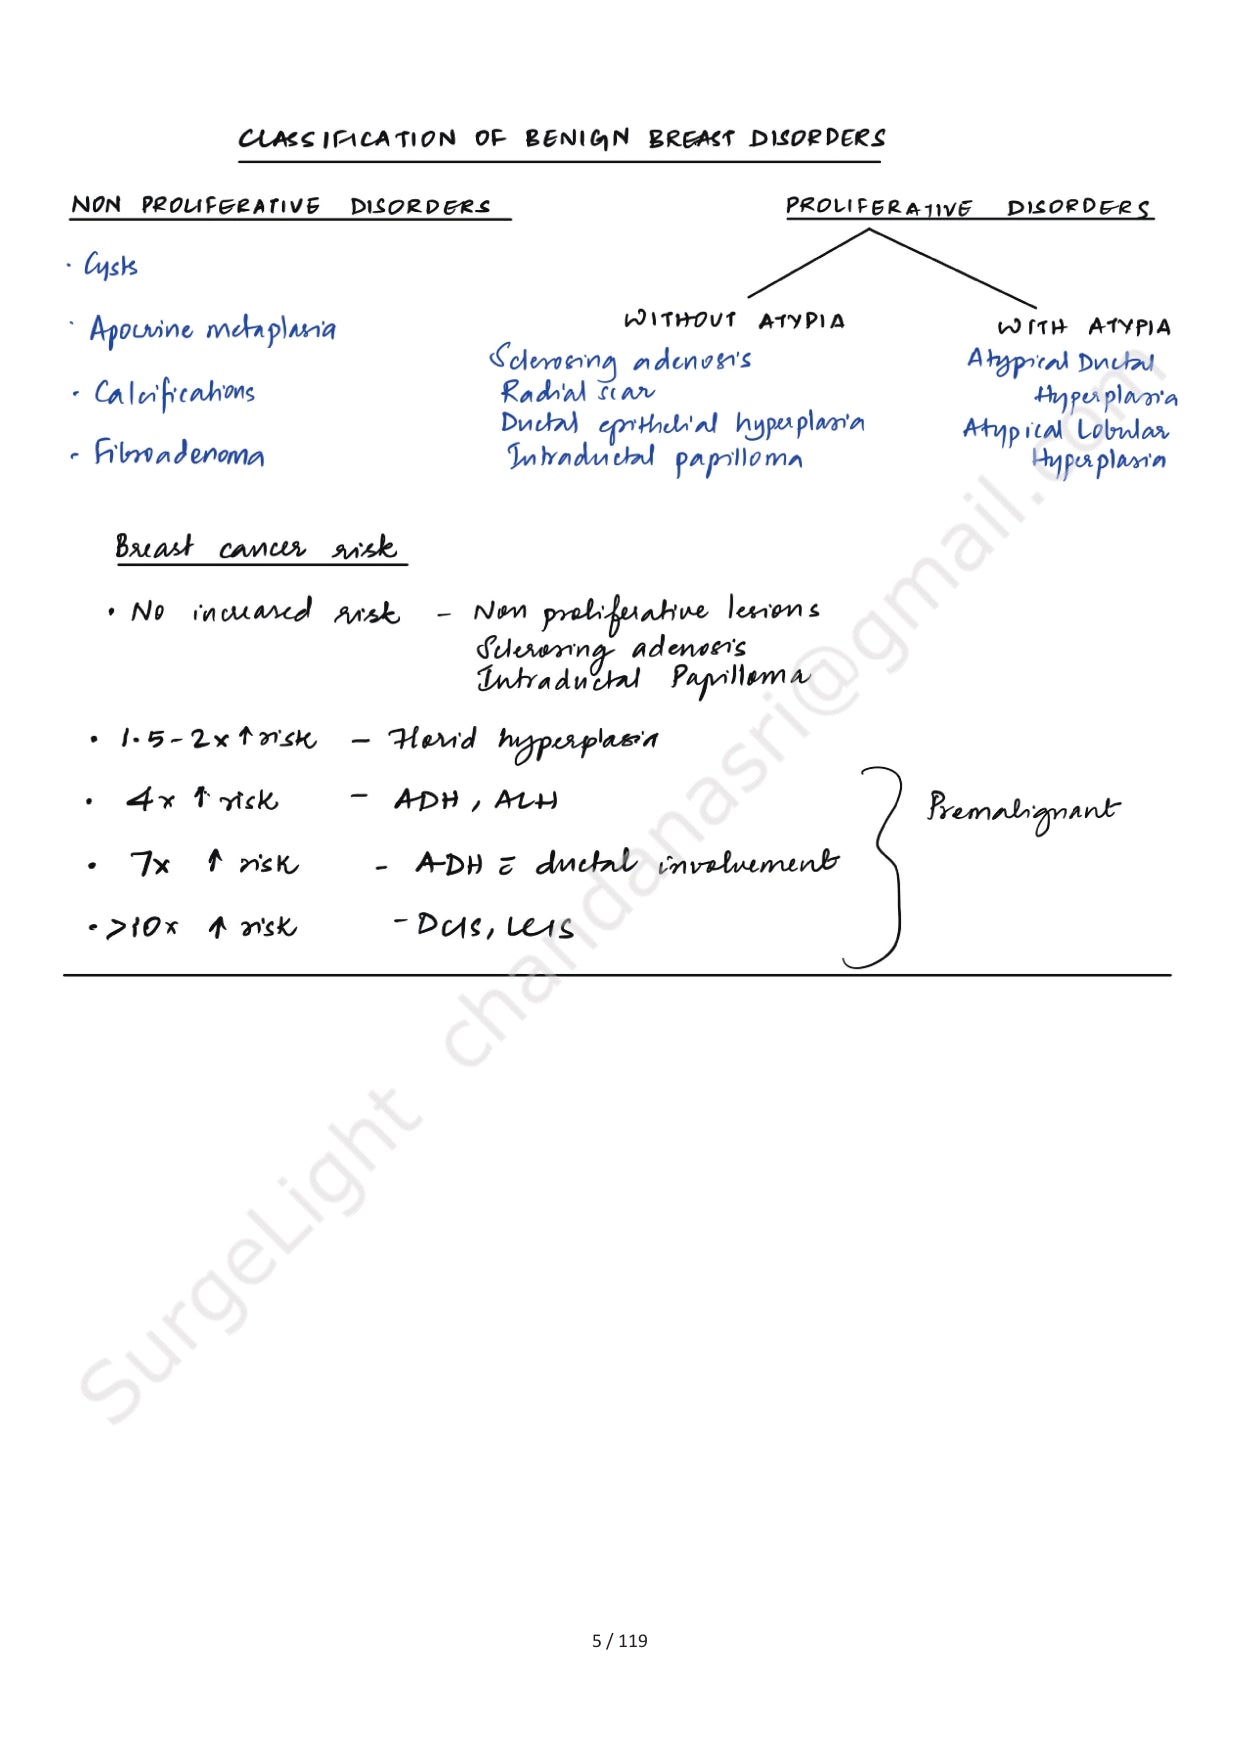 CLASSIFICATION OF BENIGN BREAST DISORDERS
NON PROLIFERATIVE DISORDERS
· Cysts
· Apocrine metaplasia
· Calcifications
- Fibroadenoma
PROLIFERATIVE DISORDERS
WITHOUT ATYPIA
Sclerosing adenosis
Radial scar
Ductal epithelial hyperplasia
Intraductal papilloma
WITH ATYPIA
Atypical Ductal
Hyperplasia
Atypical Lobular
Hyperplasia
Breast cancer risk
• No increased risk – Non proliferative lesions
Sclerosing adenosis
Intraductal Papilloma
• 1.5-2x ↑ risk – Florid hyperplasia
• 4x ↑ risk – ADH, ALH
• 7x ↑ risk - ADH c̄ ductal involvement
• >10x ↑ risk - DCIS, LCIS
Premalignant
SurgeLight chandanasri@gmail.com
5 / 119